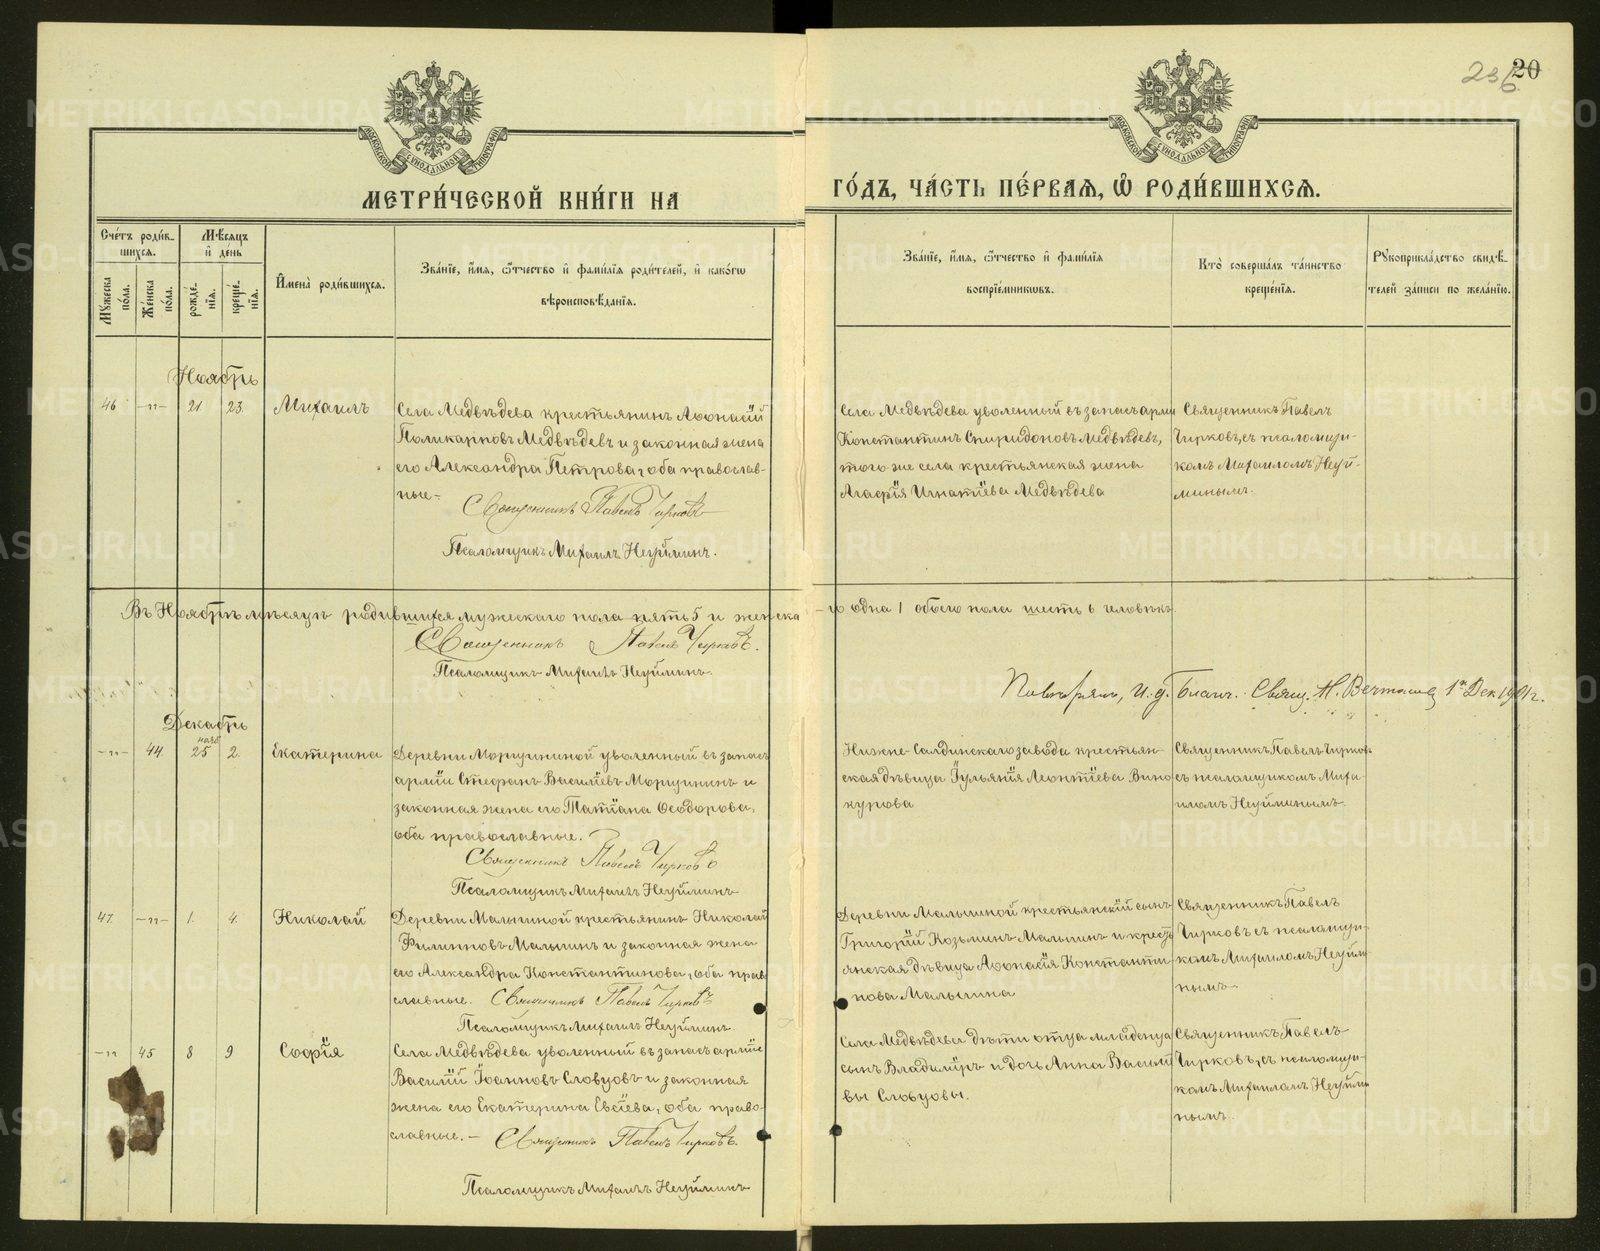 236
20
МОСКОВСКОЙ СУНОДАЛЬНОЙ ТИПОГРАФІИ
МОСКОВСКОЙ СУНОДАЛЬНОЙ ТИПОГРАФІИ
МЕТРИ́ЧЕСКОЙ КНИ́ГИ НА ГО́ДЪ, ЧА́СТЬ ПЕ́РВАЯ, Ѡ РОДИ́ВШИХСЯ.
Сче́тъ роди́в-
шихся.
Мꙋ́жеска по́ла.
Же́нска по́ла.
Мѣ́сяцъ
и де́нь
рожде́-
нїя.
креще́-
нїя.
Имена̀ роди́вшихся.
Зва́нїе, и́мя, ѻ́тчество и фами́лїя роди́телей, и како́гѡ
вѣроисповѣ́данїя.
Зва́нїе, и́мя, ѻ́тчество и фами́лїя
воспрїе́мникωвъ.
Кто̀ соверша́лъ та́инство
креще́нїя.
Рꙋкоприкла́дство свидѣ́-
телей за́писи по жела́нїю.
Ноябрь
46 -„- 21. 23. Михаилъ
Села Медвѣдева крестьянинъ Аѳонасій
Поликарповъ Медвѣдевъ и законная жена
его Александра Петрова, оба православ-
ные.-
Священникъ Павелъ Чирковъ
Псаломщикъ Михаилъ Неуйминъ.
Села Медвѣдева уволенный въ запасъ арміи
Константинъ Спиридоновъ Медвѣдевъ,
того же села крестьянская жена
Агафія Игнатіева Медвѣдева
Священникъ Павелъ
Чирковъ, съ псаломщи-
комъ Михаиломъ Неуй-
минымъ.
Въ Ноябрѣ мѣсяцѣ родившихся мужескаго пола пять 5 и женска-го одна 1 обоего пола шесть 6 человѣкъ.
Священникъ Павелъ Чирковъ.
Псаломщикъ Михаилъ Неуйминъ.
Повѣрялъ, И. д. Благ. Свящ. Н. 1го Дек 1901 г.
Декабрь
-„- 44. нояб 25 2. Екатерина
Деревни Моршининой уволенный въ запасъ
арміи Стефанъ Василіевъ Моршининъ и
законная жена его Татіана Ѳеодорова,
оба православные.
Священникъ Павелъ Чирковъ
Псаломщикъ Михаилъ Неуйминъ
Нижне-Салдинскаго завода крестьян-
ская дѣвица Іуліанія Леонтіева Вино
курова
Священникъ Павелъ Чирковъ
съ псаломщикомъ Миха-
иломъ Неуйминымъ.
47. -„- 1. 4. Николай
Деревни Малыгиной крестьянинъ Николай
Филипповъ Малыгинъ и законная жена
его Александра Константинова, оба право
славные. Священникъ Павелъ Чирковъ
Псаломщикъ Михаилъ Неуйминъ
Деревни Малыгиной крестьянскій сынъ
Григорій Козьминъ Малыгинъ и кресть
янская дѣвица Аѳонасія Константи-
нова Малыгина
Священникъ Павелъ
Чирковъ съ псаломщи-
комъ Михаиломъ Неуйми-
нымъ
-„- 45 8 9 Софія
Села Медвѣдева уволенный въ запасъ арміи
Василій Іоанновъ Словцовъ и законная
жена его Екатерина Евсіева, оба право-
славные.- Священникъ Павелъ Чирковъ.
Псаломщикъ Михаилъ Неуйминъ
Села Медвѣдева дѣти отца младенца
сынъ Владиміръ и дочь Анна Василіе
вы Словцовы.
Священникъ Павелъ
Чирковъ, съ псаломщи-
комъ Михаиломъ Неуйми
нымъ.
METRIKI.GASO-URAL.RU